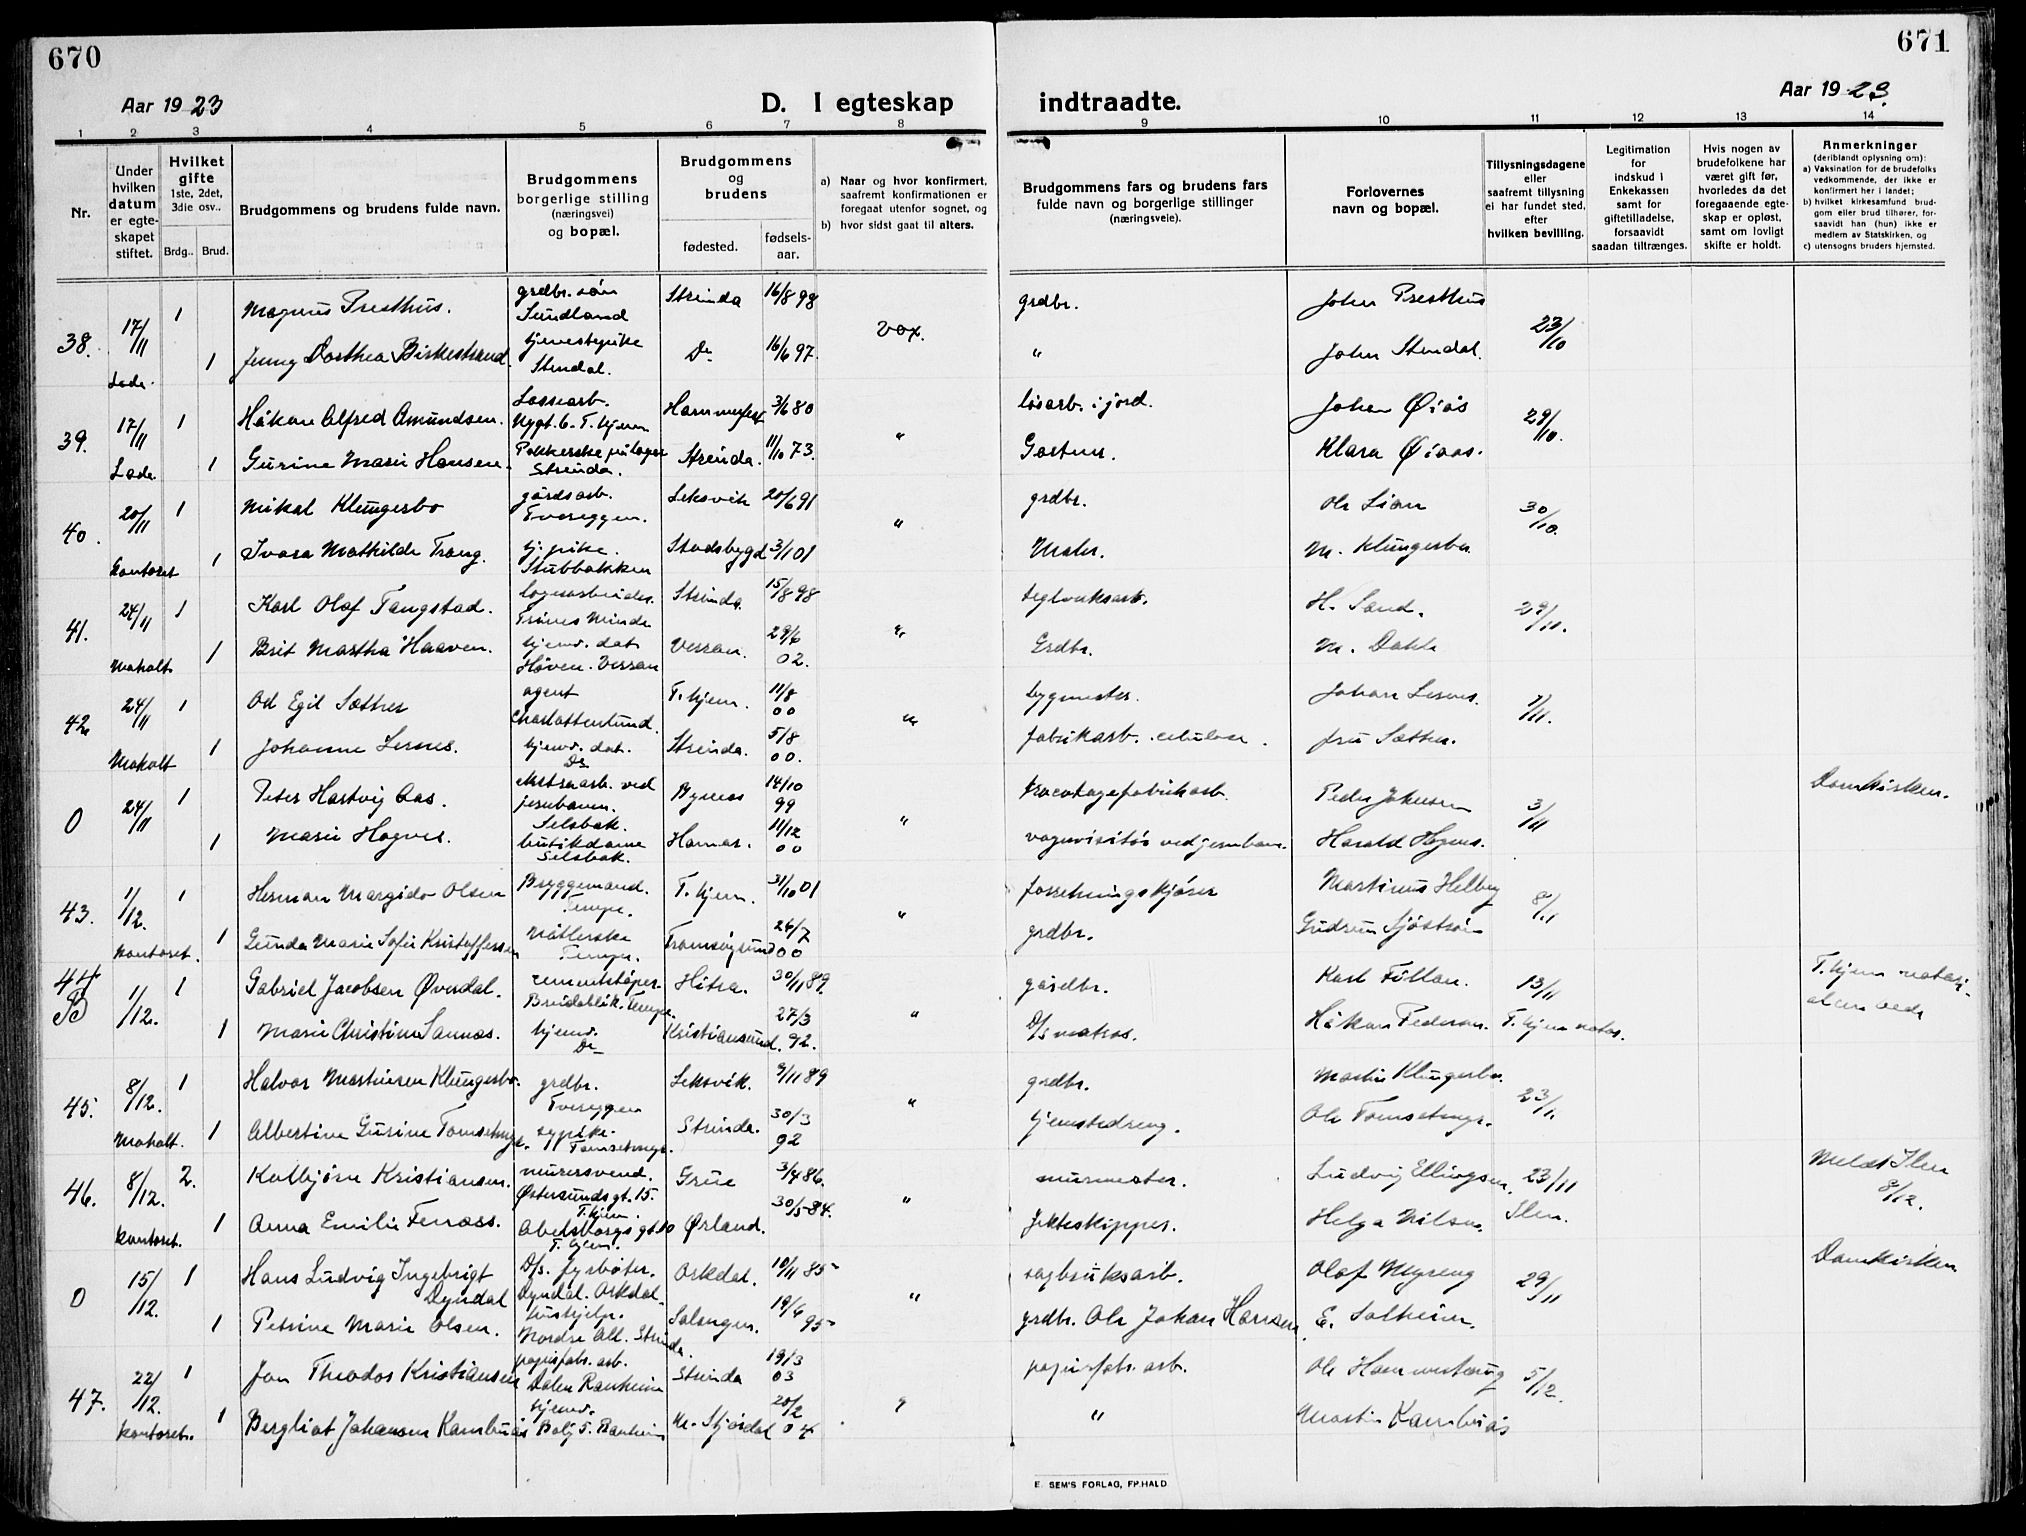 670
671
Aar 1923
D. I egteskap
indtraadte.
Aar 1923.
1 2 3 4 5 6 7 8 9 10 11 12 13 14
Nr.
Under hvilken datum er egteskapet stiftet.
Hvilket gifte 1ste, 2det, 3die osv..
Brdg.. Brud.
Brudgommens og brudens fulde navn.
Brudgommens borgerlige stilling (næringsvei) og bopæl.
Brudgommens og brudens
fødested. fødselsaar.
a) Naar og hvor konfirmert, saafremt konfirmationen er foregaat utenfor sognet, og
b) hvor sidst gaat til alters.
Brudgommens fars og brudens fars fulde navn og borgerlige stillinger (næringsveie).
Forlovernes navn og bopæl.
Tillysningsdagene eller saafremt tillysning ei har fundet sted, efter hvilken bevilling.
Legitimation for indskud i Enkekassen samt for giftetilladelse, forsaavidt saadan tiltrænges.
Hvis nogen av brudefolkene har været gift før, hvorledes da det foregaaende egteskap er opløst, samt om lovligt skifte er holdt.
Anmerkninger (deriblandt oplysning om):
a) Vaksination for de brudefolks vedkommende, der ikke er konfirmert her i landet;
b) hvilket kirkesamfund brudgom eller brud tilhører, forsaavidt han (hun) ikke er medlem av Statskirken, og
c) utensogns bruders hjemsted.
38. 17/11 Lade. 1 Magnus Presthus. grdbr. søn Sundland Strinda 16/8 98 vax. grdbr. John Presthus 23/10
1 Jenny Dorthea Birkestrand. tjenestepike Stendal. Do 16/6 97. " John Stendal.
39. 17/11 Lade 1 Håkon Alfred Amundsen. Lossearb. Nygt. 6. T.hjem Hammerfest 3/6 80 " løsarb. i jord. Johan Øiås 29/10.
1 Gurine Marie Hansen. Strinda. Strinda. 11/10 73. Gartner. Klara Øiaas.
40. 20/11 Kontoret 1 Mikal Klungerbo gårdsarb. Tvereggen. Leksvik 20/6 91 " grdbr. Ole Lian 30/10.
1 Ivara Mathilde Trang. tj. pike. Stubbakken Stadsbygd 3/1 01 Maler. M. Klungerbo.
41. 24/11 Moholt 1 Karl Olaf Tangstad. Trines Minde Strinda. 15/8 98 " teglverksarb. H. Sand. 29/11.
1 Brit Martha Haaven. hjemv. dat. Høven. Verran Verran. 29/6 02. Grdbr. M. Dahle
42. 24/11 Moholt 1 Od Egil Sæther agent Charlottenlund. T.hjem. 11/8 00 " bygmester. Johan Lernes. 7/11.
1 Johanne Lernes. hjemv. dat. Do Strinda. 5/8 00. fabrikarb. celulose. fru Sæther.
0 24/11 1 Peter Hartvig Aas. ekstraarb. ved jernbanen. Selsbak. Bynes 14/10 99 " Peder Johnsen 3/11 Domkirken.
1 Marie Høgnes. butikdame Selsbak. Hamar. 11/12 00 vognvisitør ved jernban. Harald Høgnes.
43. 1/12. Kontoret. 1 Herman Margido Olsen Bryggemand. Tempe. T.hjem. 31/10 01 " forretningskjører Martinus Helberg 8/11
1 Gunda Marie Sofie Kristoffersen Måtlerske Tempe. Tromsøysund 26/7 00 grdbr. Gudrun Sjøstrøm
44 B 1/12. 1 Gabriel Jacobsen Øverdal. cementstøper. Breidablik. Tempe. Hitra. 30/11 89. " gårdbr. Karl Fillan. 13/11 T.hjem
1 Marie Christine Sannæs. hjemv. Do Kristiansund. 27/3 92. D/s matros. Håkon Pedersen. T.hjem
45. 8/12. Moholt. 1 Halvor Martinsen Klungerbo. grdbr. Tvereggen Leksvik. 9/11 89 " grdbr. Martin Klungerbo. 23/11
1 Albertine Gurine Tomsetmyr. sypike. Tomsetmyr. Strinda. 30/3 92 tjenstedreng. Ole Tomsetmyr.
46. 8/12. Kontoret. 2. Kolbjørn Kristiansen. murersvend. Østersundsgt. 15. T.hjem. Grue 3/4 86. " murmester. Ludvig Ellingsen. 23/11 Ilen. Meldt Ilen 8/12.
1 Anna Emilie Fenæss. Abelsborgs gt 10 T.hjem. Ørland. 30/5 84. Jekteskipper. Helga Nilsen.
0 15/12. 1 Hans Ludvig Ingebrigt Dyndal D/s. fyrbøter. Dyndal. Orkdal. Orkdal. 10/11 85 " sagbruksarb. Olaf Myreng 29/11 Domkirken
1 Petrine Marie Olsen. hushjelp. Nordre All. Strinda. Salangen. 19/6 95 grdbr. Ole Johan Hansen. E. Solheim.
47. 22/12. Kontoret. 1 Jon Theodor Kristiansen papirfabr. arb. Dalen Ranheim Strinda 19/3 03 " papirfabr. arb. Ole 5/12.
1 Bergliot Johansen Kambuås hjemv. Bolig 5. Ranheim N. Stjørdal 20/2 04 " Martin Kambuås
E. SEM'S FORLAG, FR.HALD